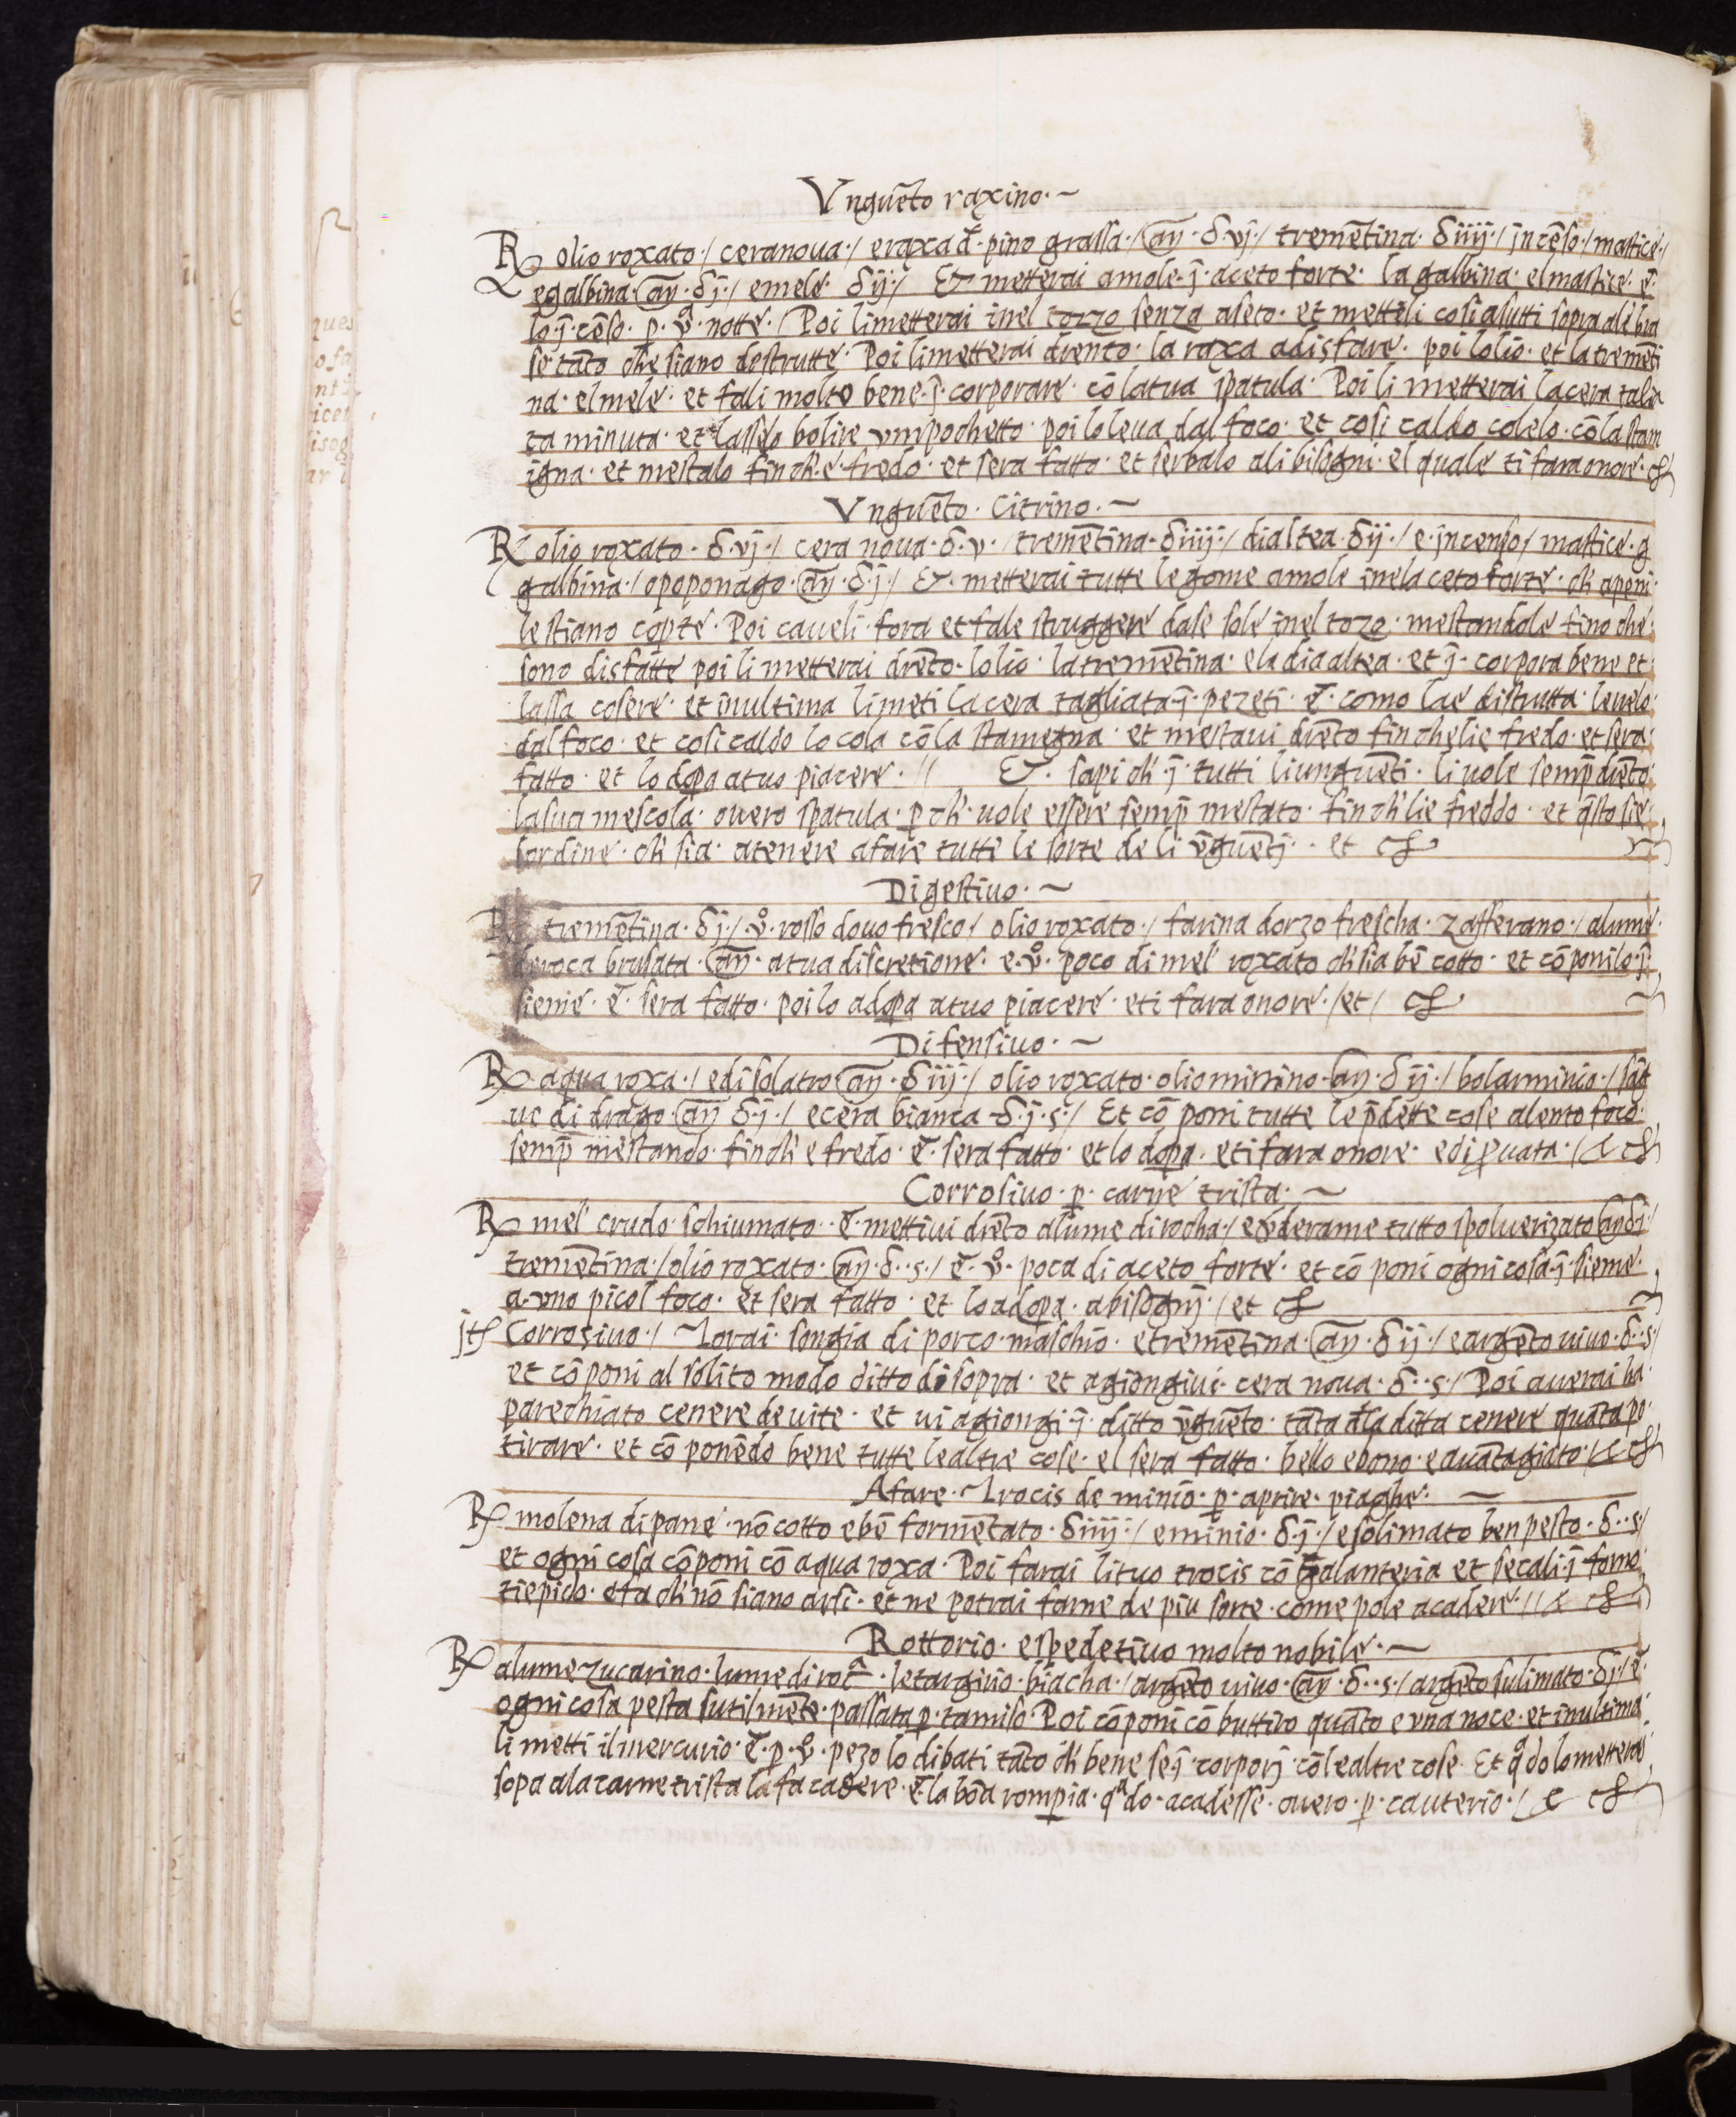 Vnguēto raxino·~
R olio roxato·/ cera noua·/ e raxa d̄· pino grassa·/ an̄·δ·vj·/ tremētina· δiiij·/ jncēso·/ mastice·/
e galbina· an̄·δj·/ e mele· δij·/ Et metterai amole·j̄· aceto forte· la galbina· el mastice· ē
lo·j̄·cēso· p̱·vᵃ·notte·/ Poi li metterai inel tozzo senza aseto· et metteli cosi asutti sopra ali bra
se tāto che siano destrutte· Poi li metterai drento· la raxa adisfare· poi lolio· et la tremēti
na· el mele· et fali molto bene·j̄·corporare· cō la tua spatula· Poi li metterai la cera talia
ta minuta· et lassalo bolire vmpochetto· poi lo leua dal foco· et cosi caldo colelo· cō la stam
igna· et mestalo finch'·e·fredo· et sera fatto· et serbalo ali bisogni· el quale ti fara onore·
Vnguēto· Citrino·~
R olio roxato·δ·vj·/ cera noua·δ·v·/ tremētina·δiiij·/ dialtea·δij·/ e·jncenso/ mastice·g
galbina·/ opoponago·an̄·δ·j·/ Et· metterai tutte le gome amole inelaceto forte· ch' apeni·
le stiano copte· Poi caueli·fora et fale struggere dase sole inel tozo· mestandole fino che·
sono disfatte poi li metterai drēto·lolio· la tremētina· e la diaaltea· et j̄·corpora bene et
lassa cosere· et inultima li meti la cera tagliata·j̄·pezeti· ē·como lae distrutta· leuelo·
dal foco· et cosi caldo lo cola cō la stamegna· et mestaui drēto finchelie fredo· et sera·
fatto· et lo dopa atuo piacere·// Et· sapi ch'·j̄·tutti li unguēti· li uole semp̄ drēto·
la sua mescola· ouero spatula· p̱ ch'·uole essere semp̄ mestato· finch' lie freddo· et q̄sto sie·
lordine· ch' sia· atenere afare tutte le sorte de li v̄guētj·· et
Digestiuo·~
R tremētina·δj·/ vᵒ·rosso douo fresco/ olio roxato·/ farina dorzo frescha· zafferano·/ alume·
deroca brusata·an̄·atua discretione· e·vᵒ·poco di mel' roxato ch' sia bē cotto· et cōponilo·j̄·
sieme·ē·sera fatto· poi lo adopa atuo piacere· eti fara onore·/et/
Difensiuo·~
R aqua roxa·/ e di solatro an̄·δiij·/ olio roxato·olio mirrino·an̄·δij·/ bolarminio·/ sāg
uc di drago an̄ δ·j·/ e cera bianca·δ·j·s·/ Et cō poni tutte le p̄dette cose alento foco·
semp̄ mestando· finch' e fredo· ē·sera fatto· et lo dopa· eti fara onore· edip̱uata·/
Corrosiuo·p̱·carne trista·~
R mel' crudo·schiumato··ē·mettiui drēto alume di rocha·/ e v̄derame tutto spoluerizato an̄δi·/
tremētina·/olio roxato·an̄·δ··s·/ ē·vᵒ·poca di aceto forte· et cō poni ogni cosa·j̄·sieme·
a·vno picol foco· et sera fatto· et lo adopa·abisognj·/et
jt Corrosiuo·/ Torai·songia di porco·maschio· e tremētina·an̄·δij·/ e argēto uiuo·δ··s/
et cōponi al solito modo ditto disopra· et agiongiui·cera noua·δ··s·/ Poi auerai ha·
parechiato cenere de uite· et ui agiongi·j̄·ditto v̄guēto· tāta d̄la ditta cenere quāta po·
tirare· et cō ponēdo bene tutte lealtre cose· el sera fatto· bello e bono· e auātagiato·/
Afare·Trocis de minio·p̱·aprire·piaghe·~
R molena di pane· nō cotto e bē formētato·δiiij·/ e minio·δ·j·/ e solimato ben pesto·δ··s·/
et ogni cosa cōponi cō aqua roxa· Poi farai li tuo trocis cō galanteria et secali·j̄ forno·
tiepido· e fa ch' nō siano arsi· et ne potrai farne de piu sorte·come pole acadere·//
Rottorio·espedetiuo molto nobile·~
R alume zucarino·lume di rocᵃ·letargirio·biacha·/argēto uiuo·an̄·δ··s·/ argēto sulimato·δj·/ē·
ogni cosa pesta sutilmēte·passata p̱·tamiso· Poi cōponi cō buttiro quāto e vna noce· et inultima·
li metti il mercurio·ē·p̱·vᵒ·pezo lo dibati tāto ch' bene se·j̄·corporj·cō lealtre cose· Et qᵃdo lo metterai·
sopa ala carne trista la fa cadere·ē·la bōa rompia·qᵃdo·acadesse·ouero·p̱·cauterio·/